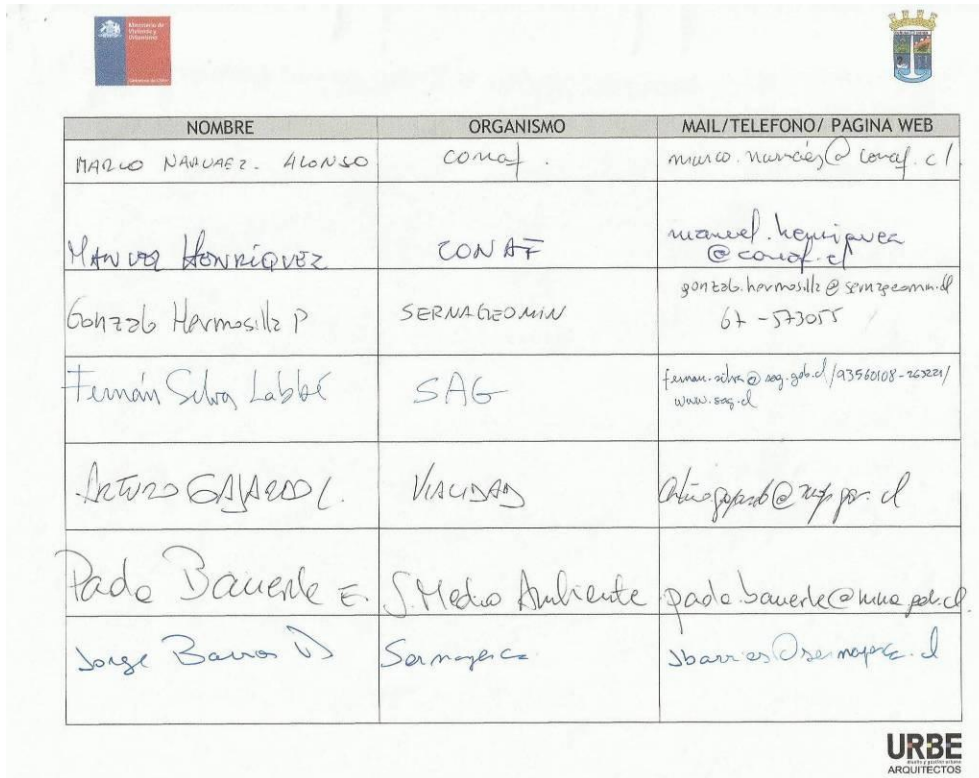 Ministerio de
Vivienda y
Urbanismo
Gobierno de Chile
NOMBRE ORGANISMO MAIL/TELEFONO/ PAGINA WEB
MARCO NARVAEZ. ALONSO conaf. @conaf.cl
MANUEL HENRÍQUEZ CONAF manuel.henriquez
@conaf.cl
Gonzalo Hermosilla P SERNAGEOMIN gonzalo.hermosilla@sernageomin.cl
67-573055
Fernán Silva Labbé SAG fernan.silva@sag.gob.cl/93560108-263221/
www.sag.cl
ARTURO GAJARDO L. VIALIDAD
Bauerle E. S. Medio Ambiente
Jorge Barros Sernapesca
URBE
diseño y gestión urbana
ARQUITECTOS